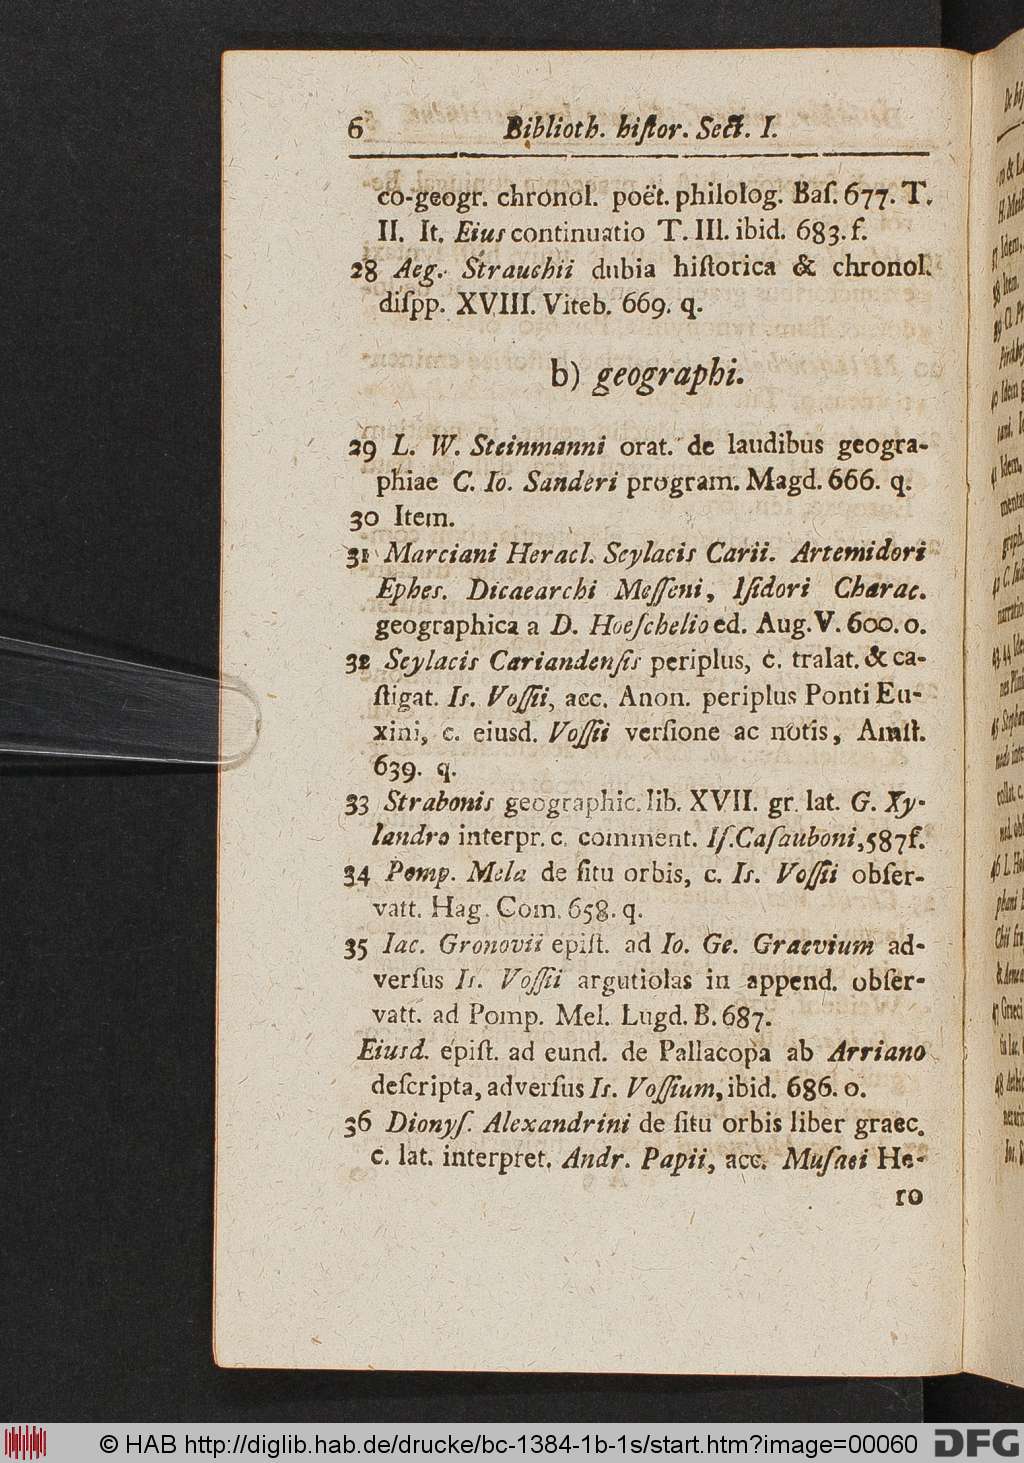 6 Biblioth. hiſtor. Sect. I.
co-geogr. chronol. poët. philolog. Baſ. 677. T.
II. It. Eius continuatio T. III. ibid. 683. f.
28 Aeg. Strauchii dubia hiſtorica & chronol.
diſpp. XVIII. Viteb. 669. q.
b) geographi.
29 L. W. Steinmanni orat. de laudibus geogra-
phiae C. Io. Sanderi program. Magd. 666. q.
30 Item.
31 Marciani Heracl. Scylacis Carii. Artemidori
Ephes. Dicaearchi Meſſeni, Iſidori Charac.
geographica a D. Hoeſchelio ed. Aug. V. 600. o.
32 Scylacis Cariandenſis periplus, c. tralat. & ca-
ſtigat. Is. Voſſii, acc. Anon. periplus Ponti Eu-
xini, c. eiusd. Voſſii verſione ac notis, Amſt.
639. q.
33 Strabonis geographic. lib. XVII. gr. lat. G. Xy-
landro interpr. c. comment. Iſ. Caſauboni, 587 f.
34 Pomp. Mela de ſitu orbis, c. Is. Voſſii obſer-
vatt. Hag. Com. 658. q.
35 Iac. Gronovii epiſt. ad Io. Ge. Graevium ad-
verſus Is. Voſſii argutiolas in append. obſer-
vatt. ad Pomp. Mel. Lugd. B. 687.
Eiusd. epiſt. ad eund. de Pallacopa ab Arriano
deſcripta, adverſus Is. Voſſium, ibid. 686. o.
36 Dionyſ. Alexandrini de ſitu orbis liber graec.
c. lat. interpret. Andr. Papii, acc. Muſaei He-
ro
© HAB http://diglib.hab.de/drucke/bc-1384-1b-1s/start.htm?image=00060
DFG